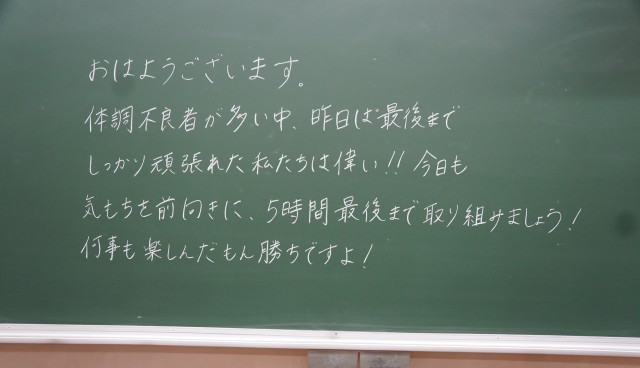 おはようございます。
体調不良者が多い中、昨日は最後まで
しっかり頑張れた私たちは偉い!! 今日も
気もちを前向きに、5時間最後まで取り組みましょう!
何事も楽しんだもん勝ちですよ!